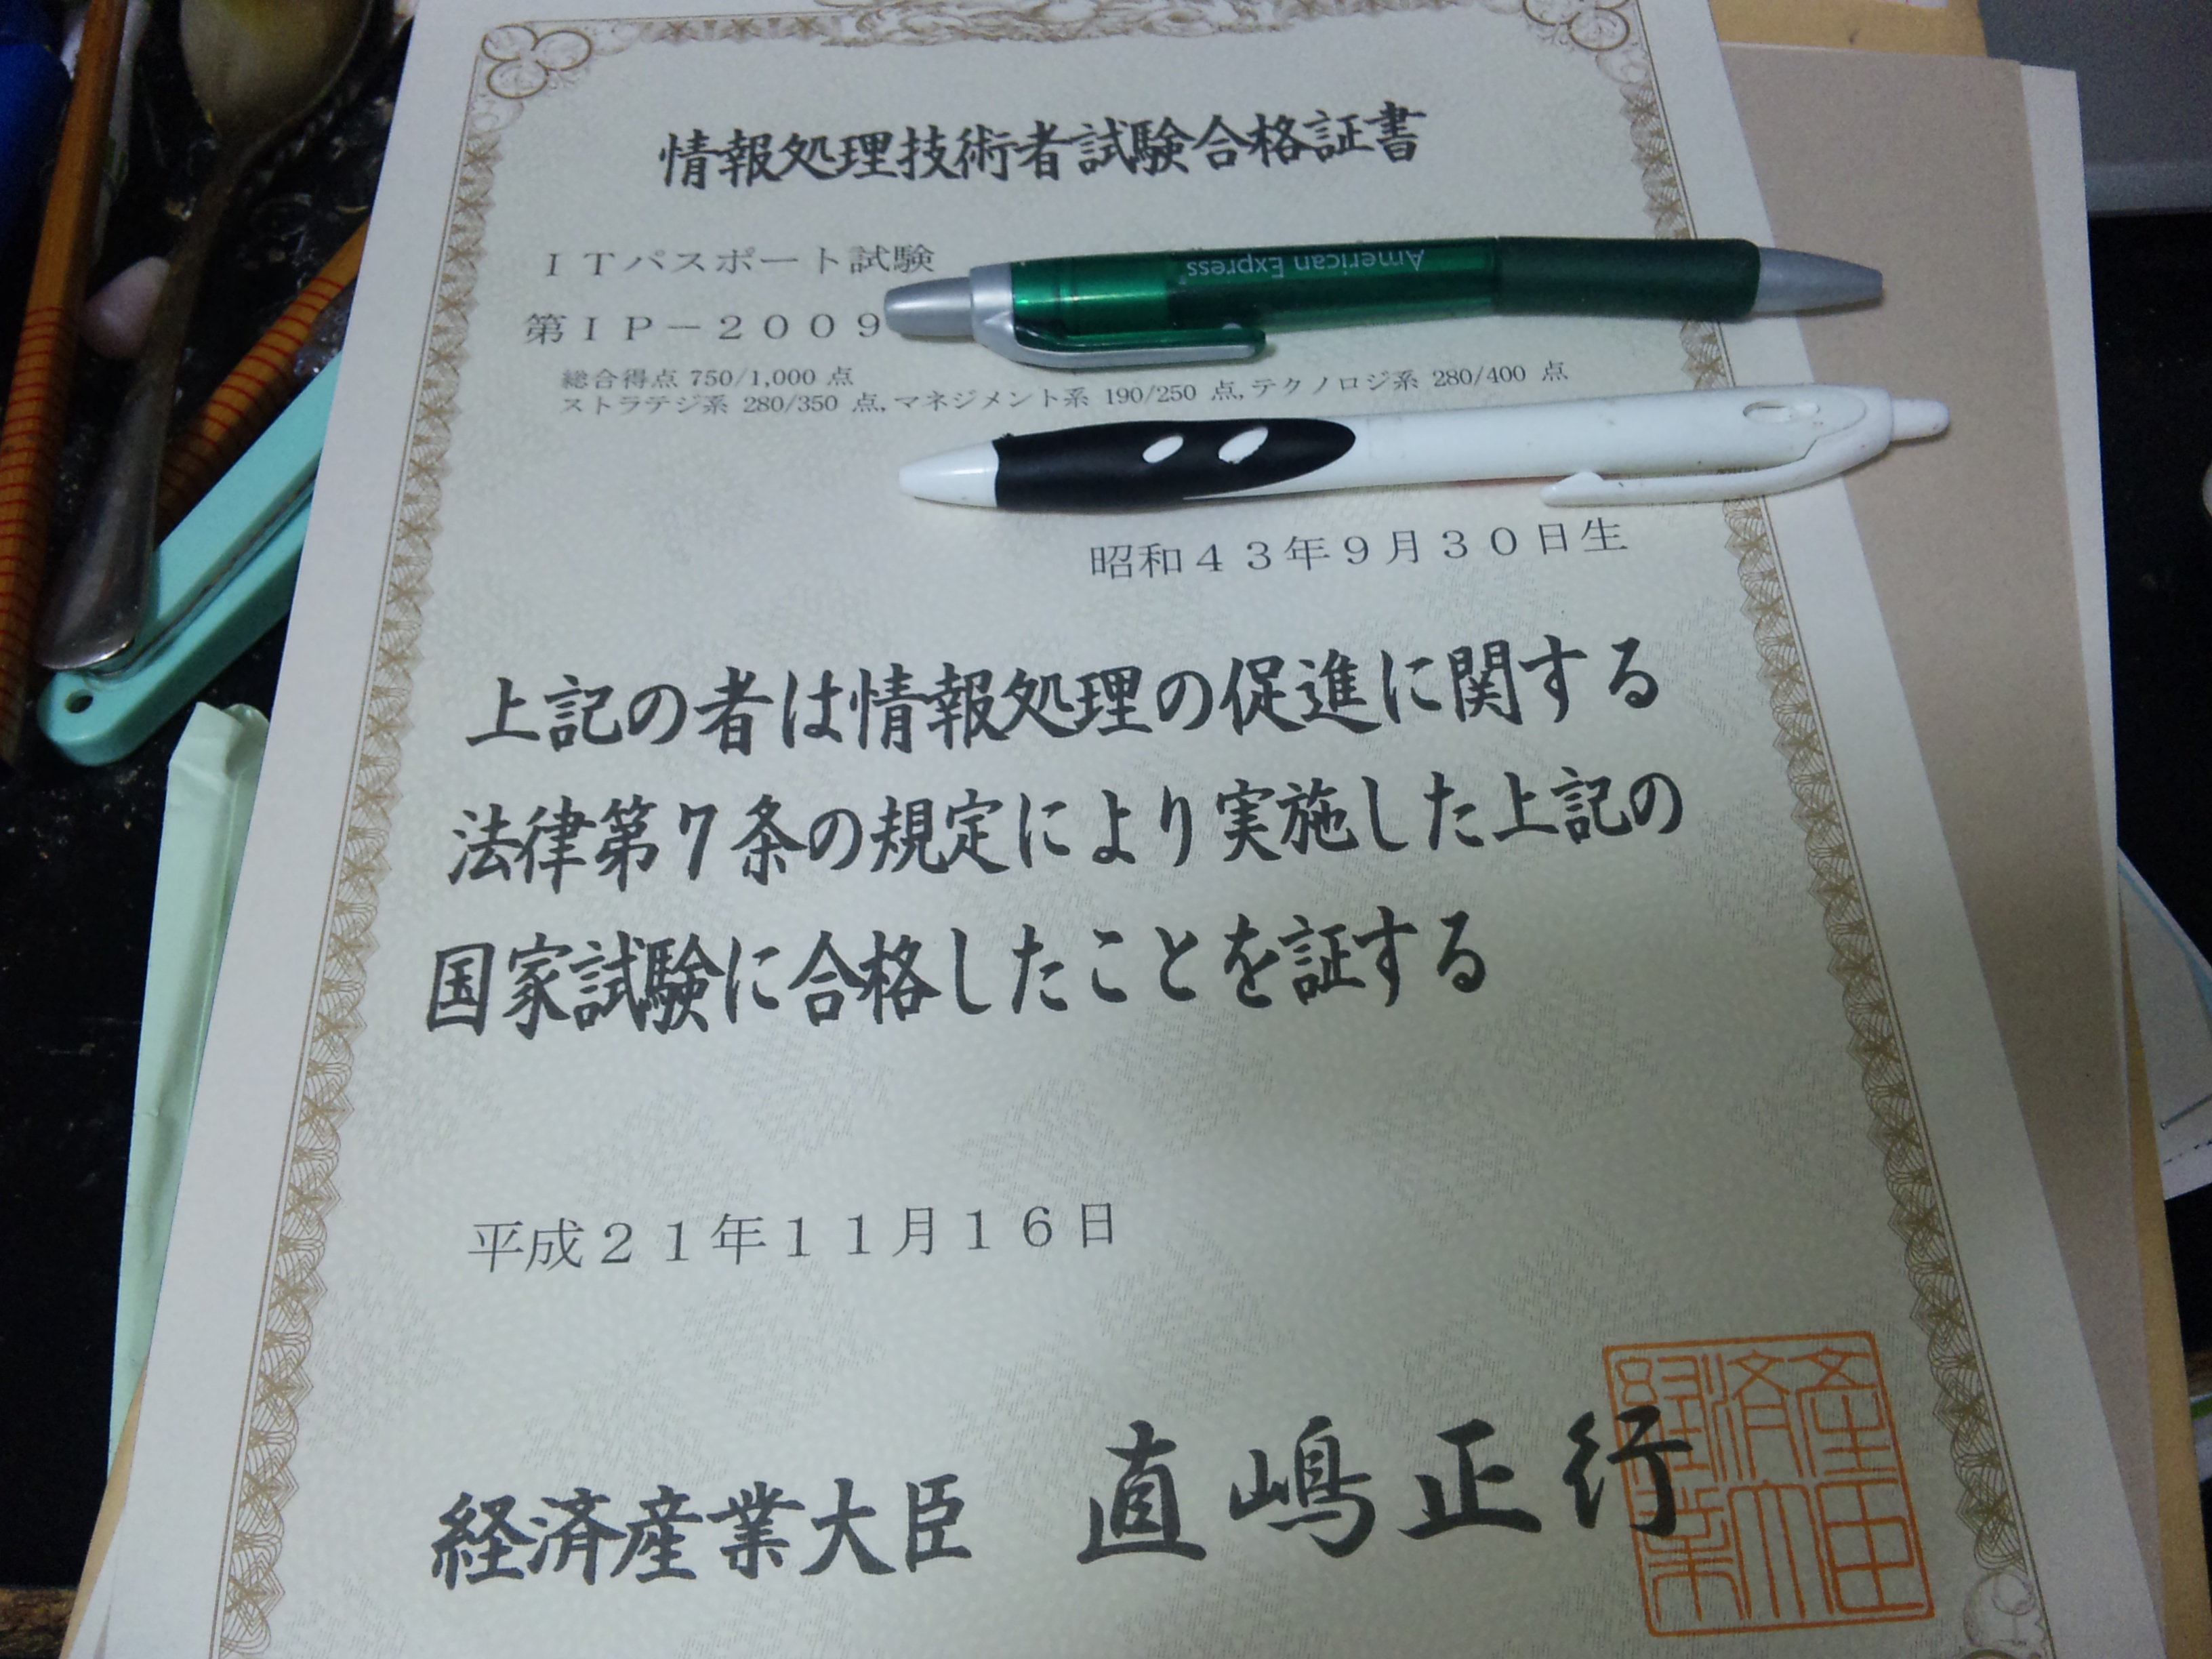 情報処理技術者試験合格証書
ＩＴパスポート試験
第ＩＰ－２００９
American Express
総合得点 750/1,000 点
ストラテジ系 280/350 点, マネジメント系 190/250 点, テクノロジ系 280/400 点
昭和４３年９月３０日生
上記の者は情報処理の促進に関する
法律第７条の規定により実施した上記の
国家試験に合格したことを証する
平成２１年１１月１６日
経済産業大臣 直嶋正行
経済産業大臣